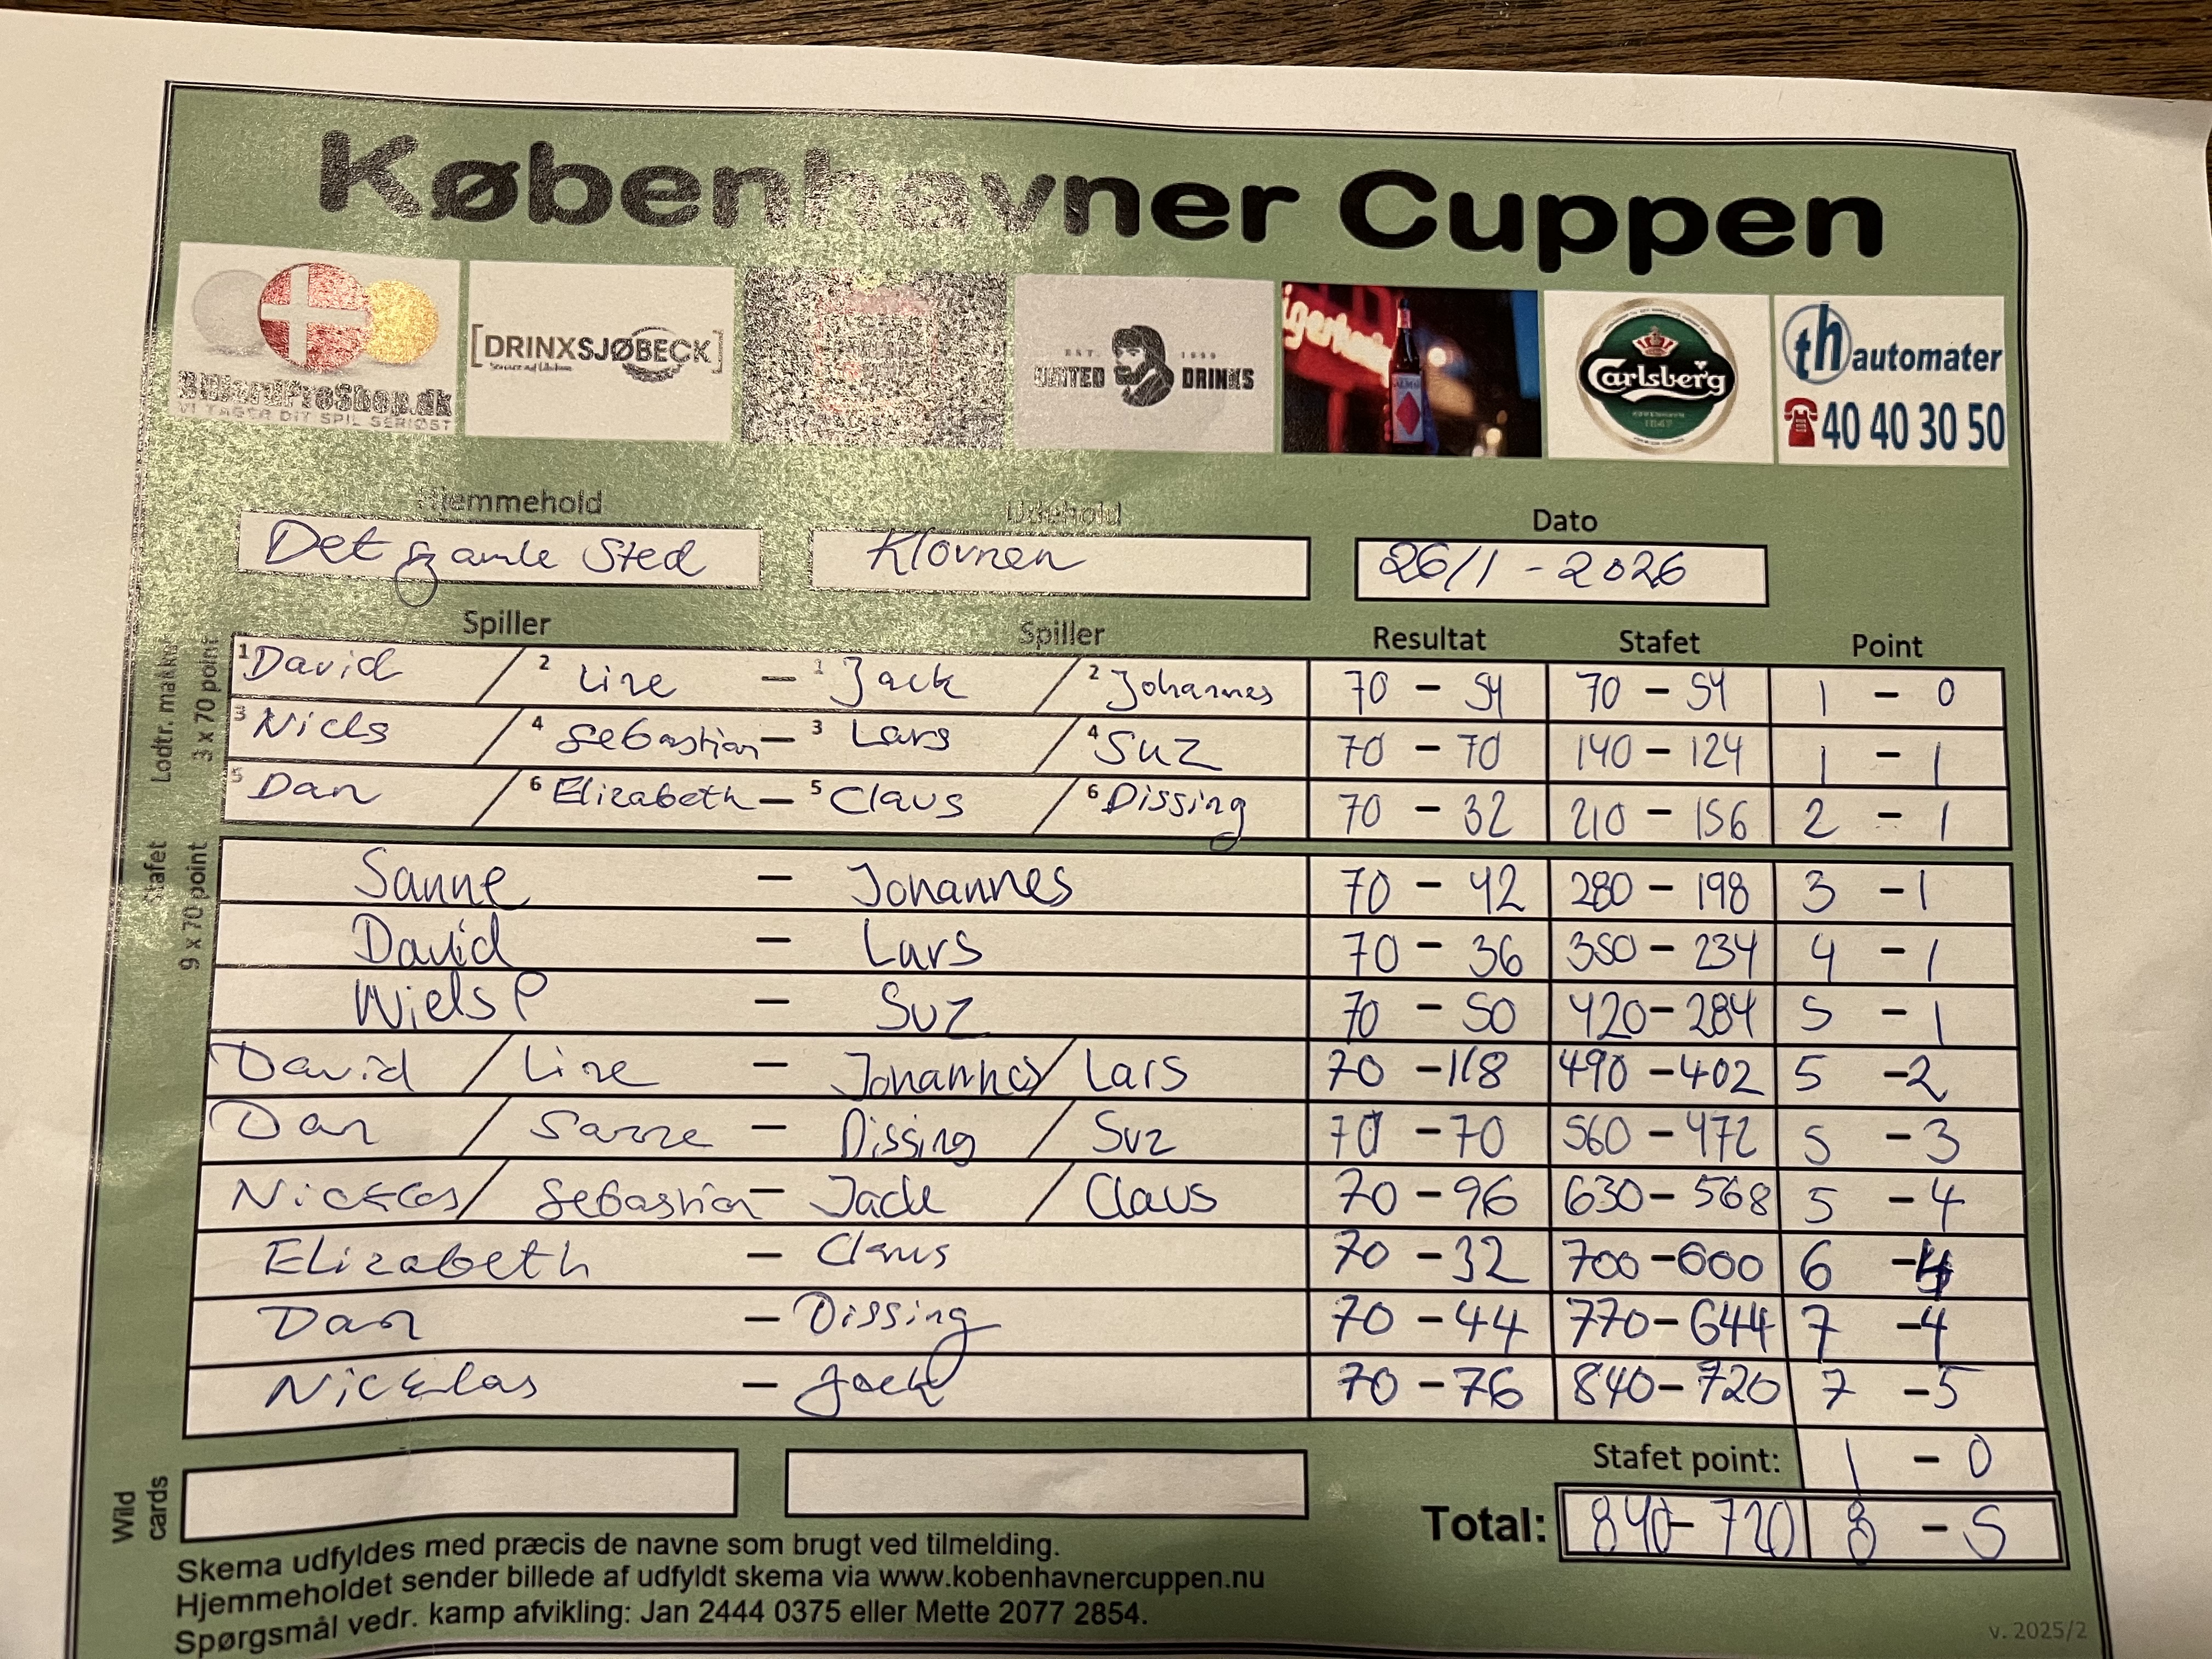 Københavner Cuppen
BilliardProShop.dk
VI TAGER DIT SPIL SERIØST
[DRINXSJØBECK]
EST. 1999
UNITED DRINKS
Carlsberg
th automater
40 40 30 50
Hjemmehold Udehold Dato
Det gamle Sted Klovnen 26/1 - 2026
Spiller Spiller Resultat Stafet Point
Lodtr. makker
3 x 70 point
1 David / 2 Line - 1 Jack / 2 Johannes 70 - 54 70 - 54 1 - 0
3 Niels / 4 Sebastian - 3 Lars / 4 Suz 70 - 70 140 - 124 1 - 1
5 Dan / 6 Elizabeth - 5 Claus / 6 Dissing 70 - 32 210 - 156 2 - 1
Stafet
9 x 70 point
Sanne - Johannes 70 - 42 280 - 198 3 - 1
David - Lars 70 - 36 350 - 234 4 - 1
Niels P - Suz 70 - 50 420 - 284 5 - 1
David / Line - Johannes / Lars 70 - 118 490 - 402 5 - 2
Dan / Sanne - Dissing / Suz 70 - 70 560 - 472 5 - 3
Nicklas / Sebastian - Jack / Claus 70 - 96 630 - 568 5 - 4
Elizabeth - Claus 70 - 32 700 - 600 6 - 4
Dan - Dissing 70 - 44 770 - 644 7 - 4
Nicklas - Jack 70 - 76 840 - 720 7 - 5
Stafet point: 1 - 0
Wild cards
Total: 840 - 720 8 - 5
Skema udfyldes med præcis de navne som brugt ved tilmelding.
Hjemmeholdet sender billede af udfyldt skema via www.kobenhavnercuppen.nu
Spørgsmål vedr. kamp afvikling: Jan 2444 0375 eller Mette 2077 2854.
v. 2025/2